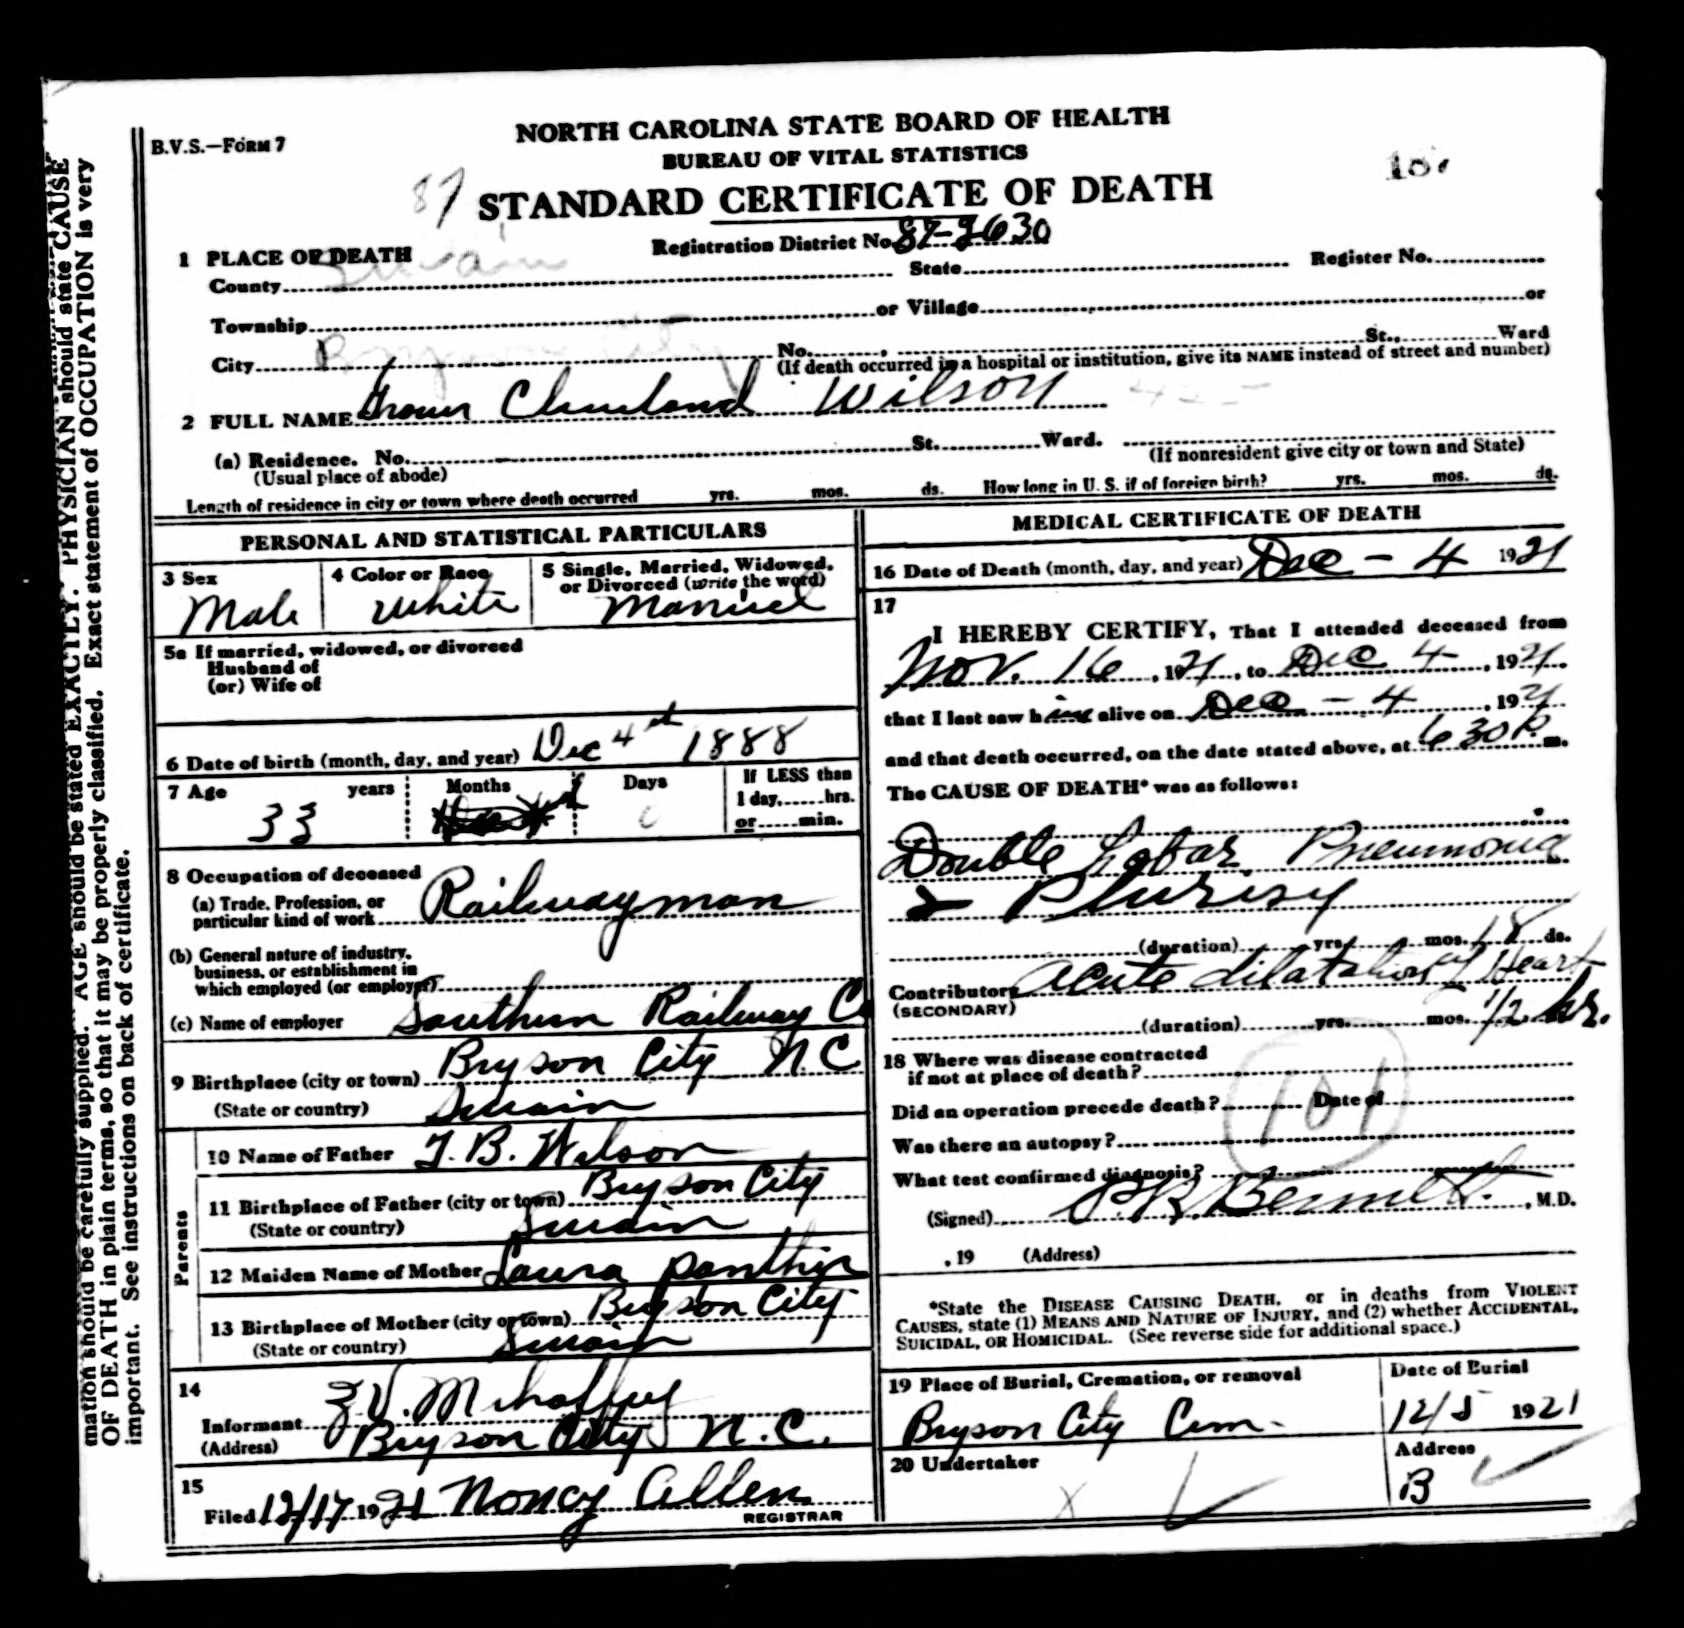 NORTH CAROLINA STATE BOARD OF HEALTH
B.V.S.—FORM 7
BUREAU OF VITAL STATISTICS
87
STANDARD CERTIFICATE OF DEATH
Registration District No. 87-3630
1 PLACE OF DEATH
County Swain State Register No.
Township or Village or
City Bryson City No. , St., Ward
(If death occurred in a hospital or institution, give its NAME instead of street and number)
2 FULL NAME Grover Cleveland Wilson
(a) Residence. No. St. Ward.
(Usual place of abode) (If nonresident give city or town and State)
Length of residence in city or town where death occurred yrs. mos. ds. How long in U. S. if of foreign birth? yrs. mos. ds.
PERSONAL AND STATISTICAL PARTICULARS
3 Sex
Male
4 Color or Race
White
5 Single, Married, Widowed,
or Divorced (write the word)
Married
5a If married, widowed, or divorced
Husband of
(or) Wife of
6 Date of birth (month, day, and year) Dec 4th 1888
7 Age years Months Days If LESS than
33 1 day, hrs.
or min.
8 Occupation of deceased
(a) Trade, Profession, or
particular kind of work Railwayman
(b) General nature of industry,
business, or establishment in
which employed (or employer)
(c) Name of employer Southern Railway Co
9 Birthplace (city or town) Bryson City N.C
(State or country) Swain
Parents
10 Name of Father T. B. Wilson
11 Birthplace of Father (city or town) Bryson City
(State or country) Swain
12 Maiden Name of Mother Laura Panther
13 Birthplace of Mother (city or town) Bryson City
(State or country) Swain
14
Informant
(Address) Bryson City N.C.
15
Filed 12/17 1921 Nancy Allen
REGISTRAR
MEDICAL CERTIFICATE OF DEATH
16 Date of Death (month, day, and year) Dec - 4 1921
17
I HEREBY CERTIFY, That I attended deceased from
Nov. 16, 1921, to Dec 4, 1921
that I last saw him alive on Dec - 4, 1921
and that death occurred, on the date stated above, at 630 P. m.
The CAUSE OF DEATH* was as follows:
Double Lobar Pneumonia
& Plurisy
(duration) yrs. mos. 18 ds.
Contributory Acute dilatation of Heart
(SECONDARY)
(duration) yrs. mos. 1/2 hr.
18 Where was disease contracted
if not at place of death?
Did an operation precede death? Date of
101
Was there an autopsy?
What test confirmed diagnosis?
(Signed) P.R. Bennett, M.D.
, 19 (Address)
*State the DISEASE CAUSING DEATH, or in deaths from VIOLENT
CAUSES, state (1) MEANS AND NATURE OF INJURY, and (2) whether ACCIDENTAL,
SUICIDAL, OR HOMICIDAL. (See reverse side for additional space.)
19 Place of Burial, Cremation, or removal
Bryson City Cem.
Date of Burial
12/5 1921
20 Undertaker
Address
B
mation should be carefully supplied. AGE should be stated EXACTLY. PHYSICIAN should state CAUSE
OF DEATH in plain terms, so that it may be properly classified. Exact statement of OCCUPATION is very
important. See instructions on back of certificate.